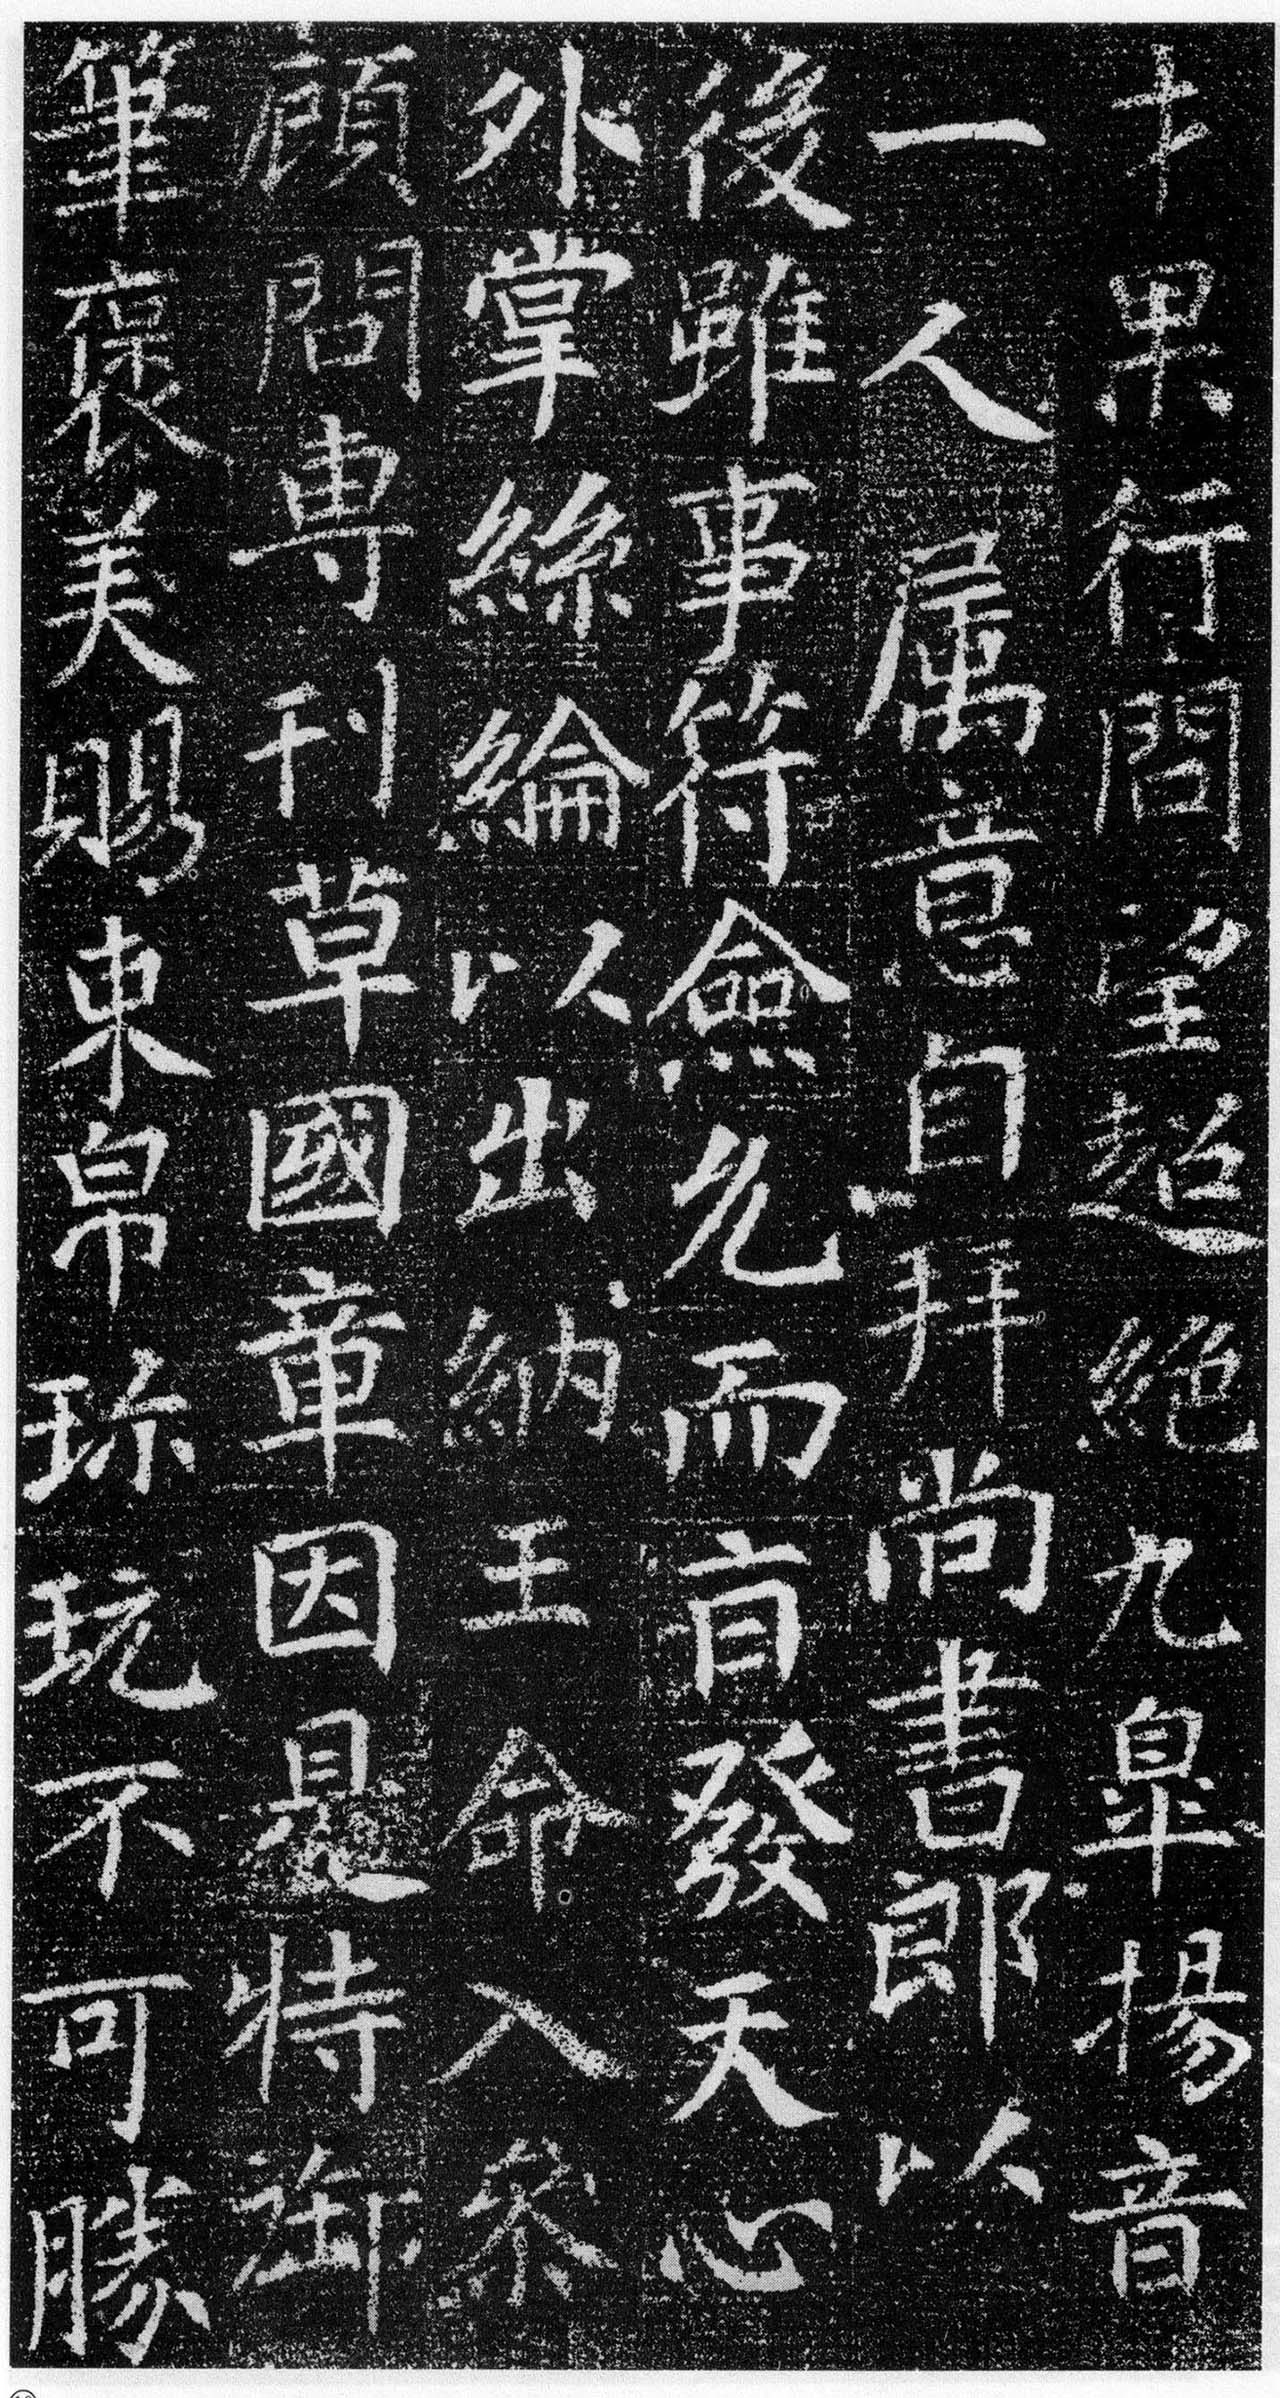 才果行間望超絕九皐揚音
一人属意自拜尚書郎以
後雖事符僉允而旨發天心
外掌絲綸以出納王命入叅
顧問専刊草國章因是特御
筆褒美賜束帛珎玩不可勝